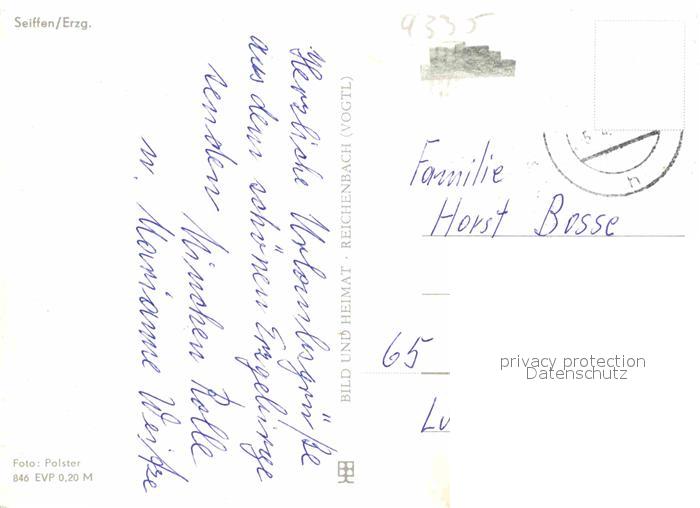 Seiffen/Erzg.
Herzliche Urlaubsgrüße
aus dem schönen Erzgebirge
senden
w. Marianne
Foto: Polster
846 EVP 0,20 M
BILD UND HEIMAT · REICHENBACH (VOGTL)
9335
Familie
Horst Bosse
65
Lu
privacy protection
Datenschutz